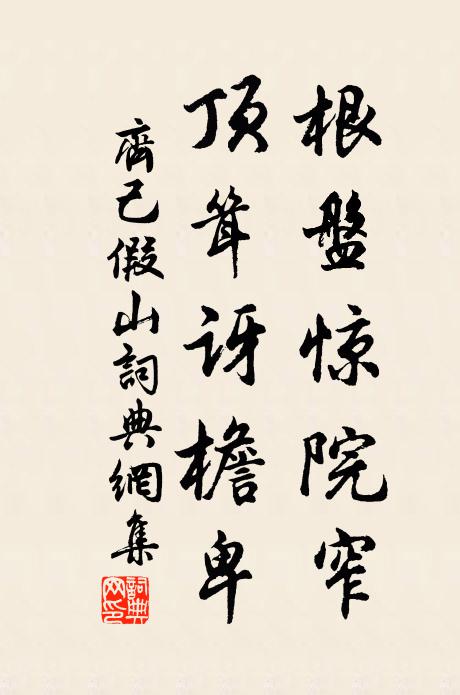 根盤惊院窄
頂耸讶檐卑
齊己假山詞典網集
詞典网印